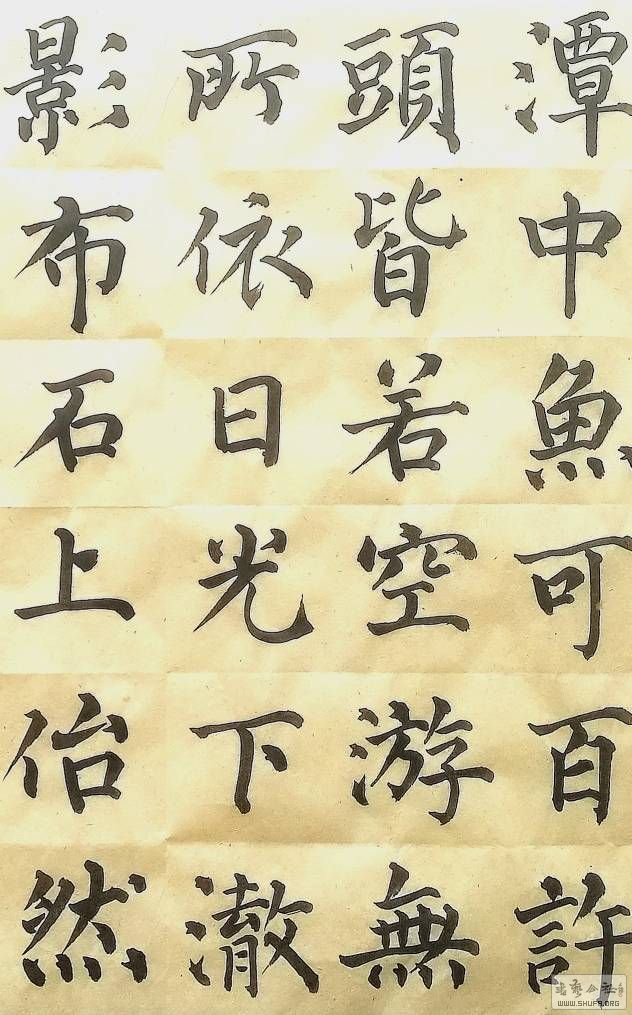 潭中魚可百許
頭皆若空游無
所依日光下澈
影布石上佁然
書藝公社
WWW.SHUFA.ORG